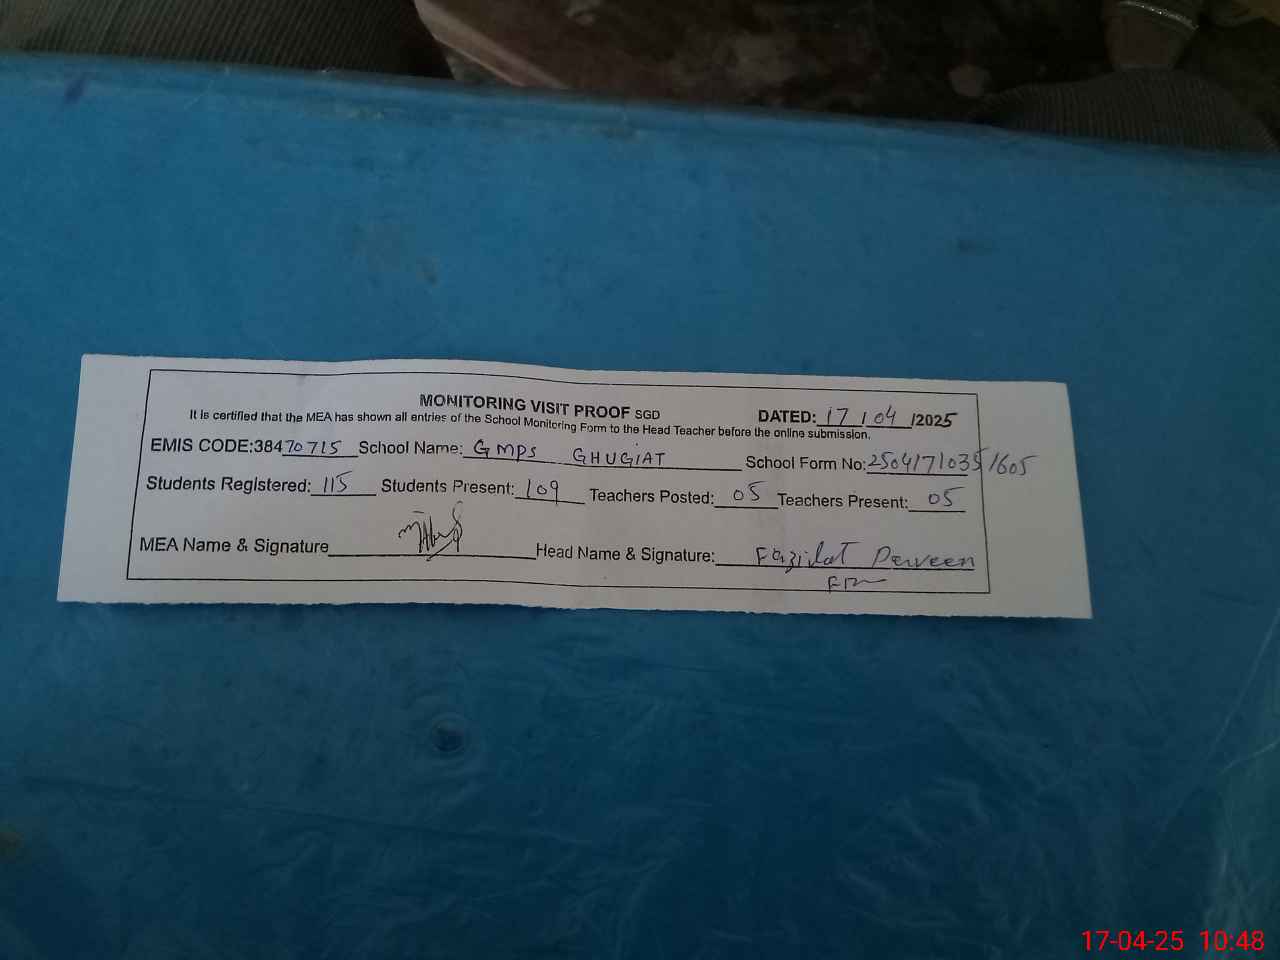 MONITORING VISIT PROOF SGD DATED: 17/04/2025
It is certified that the MEA has shown all entries of the School Monitoring Form to the Head Teacher before the online submission.
EMIS CODE:38470715 School Name: GMPS GHUGIAT School Form No: 2504171035 1605
Students Registered: 115 Students Present: 109 Teachers Posted: 05 Teachers Present: 05
MEA Name & Signature Head Name & Signature: Fazilat Parveen
17-04-25 10:48